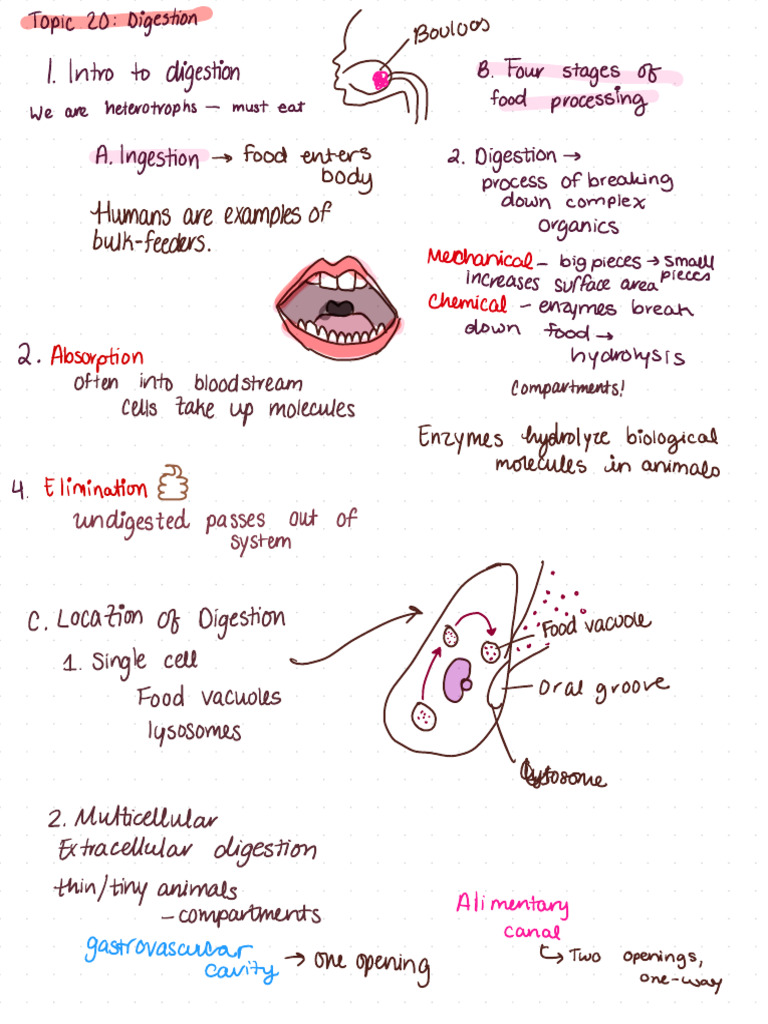 Topic 20: Digestion
Bouloos
1. Intro to digestion
We are heterotrophs — must eat
A. Ingestion → food enters
body
Humans are examples of
bulk-feeders.
B. Four stages of
food processing
2. Digestion →
process of breaking
down complex
organics
Mechanical — big pieces → small
increases surface area pieces
Chemical — enzymes break
down food →
hydrolysis
Compartments!
Enzymes hydrolyze biological
molecules in animals
2. Absorption
often into bloodstream
cells take up molecules
4. Elimination
undigested passes out of
system
C. Location of Digestion
1. Single cell
Food vacuoles
lysosomes
Food vacuole
Oral groove
Lysosome
2. Multicellular
Extracellular digestion
thin/tiny animals
— compartments
gastrovascular
cavity → one opening
Alimentary
canal
↳ Two openings,
one-way